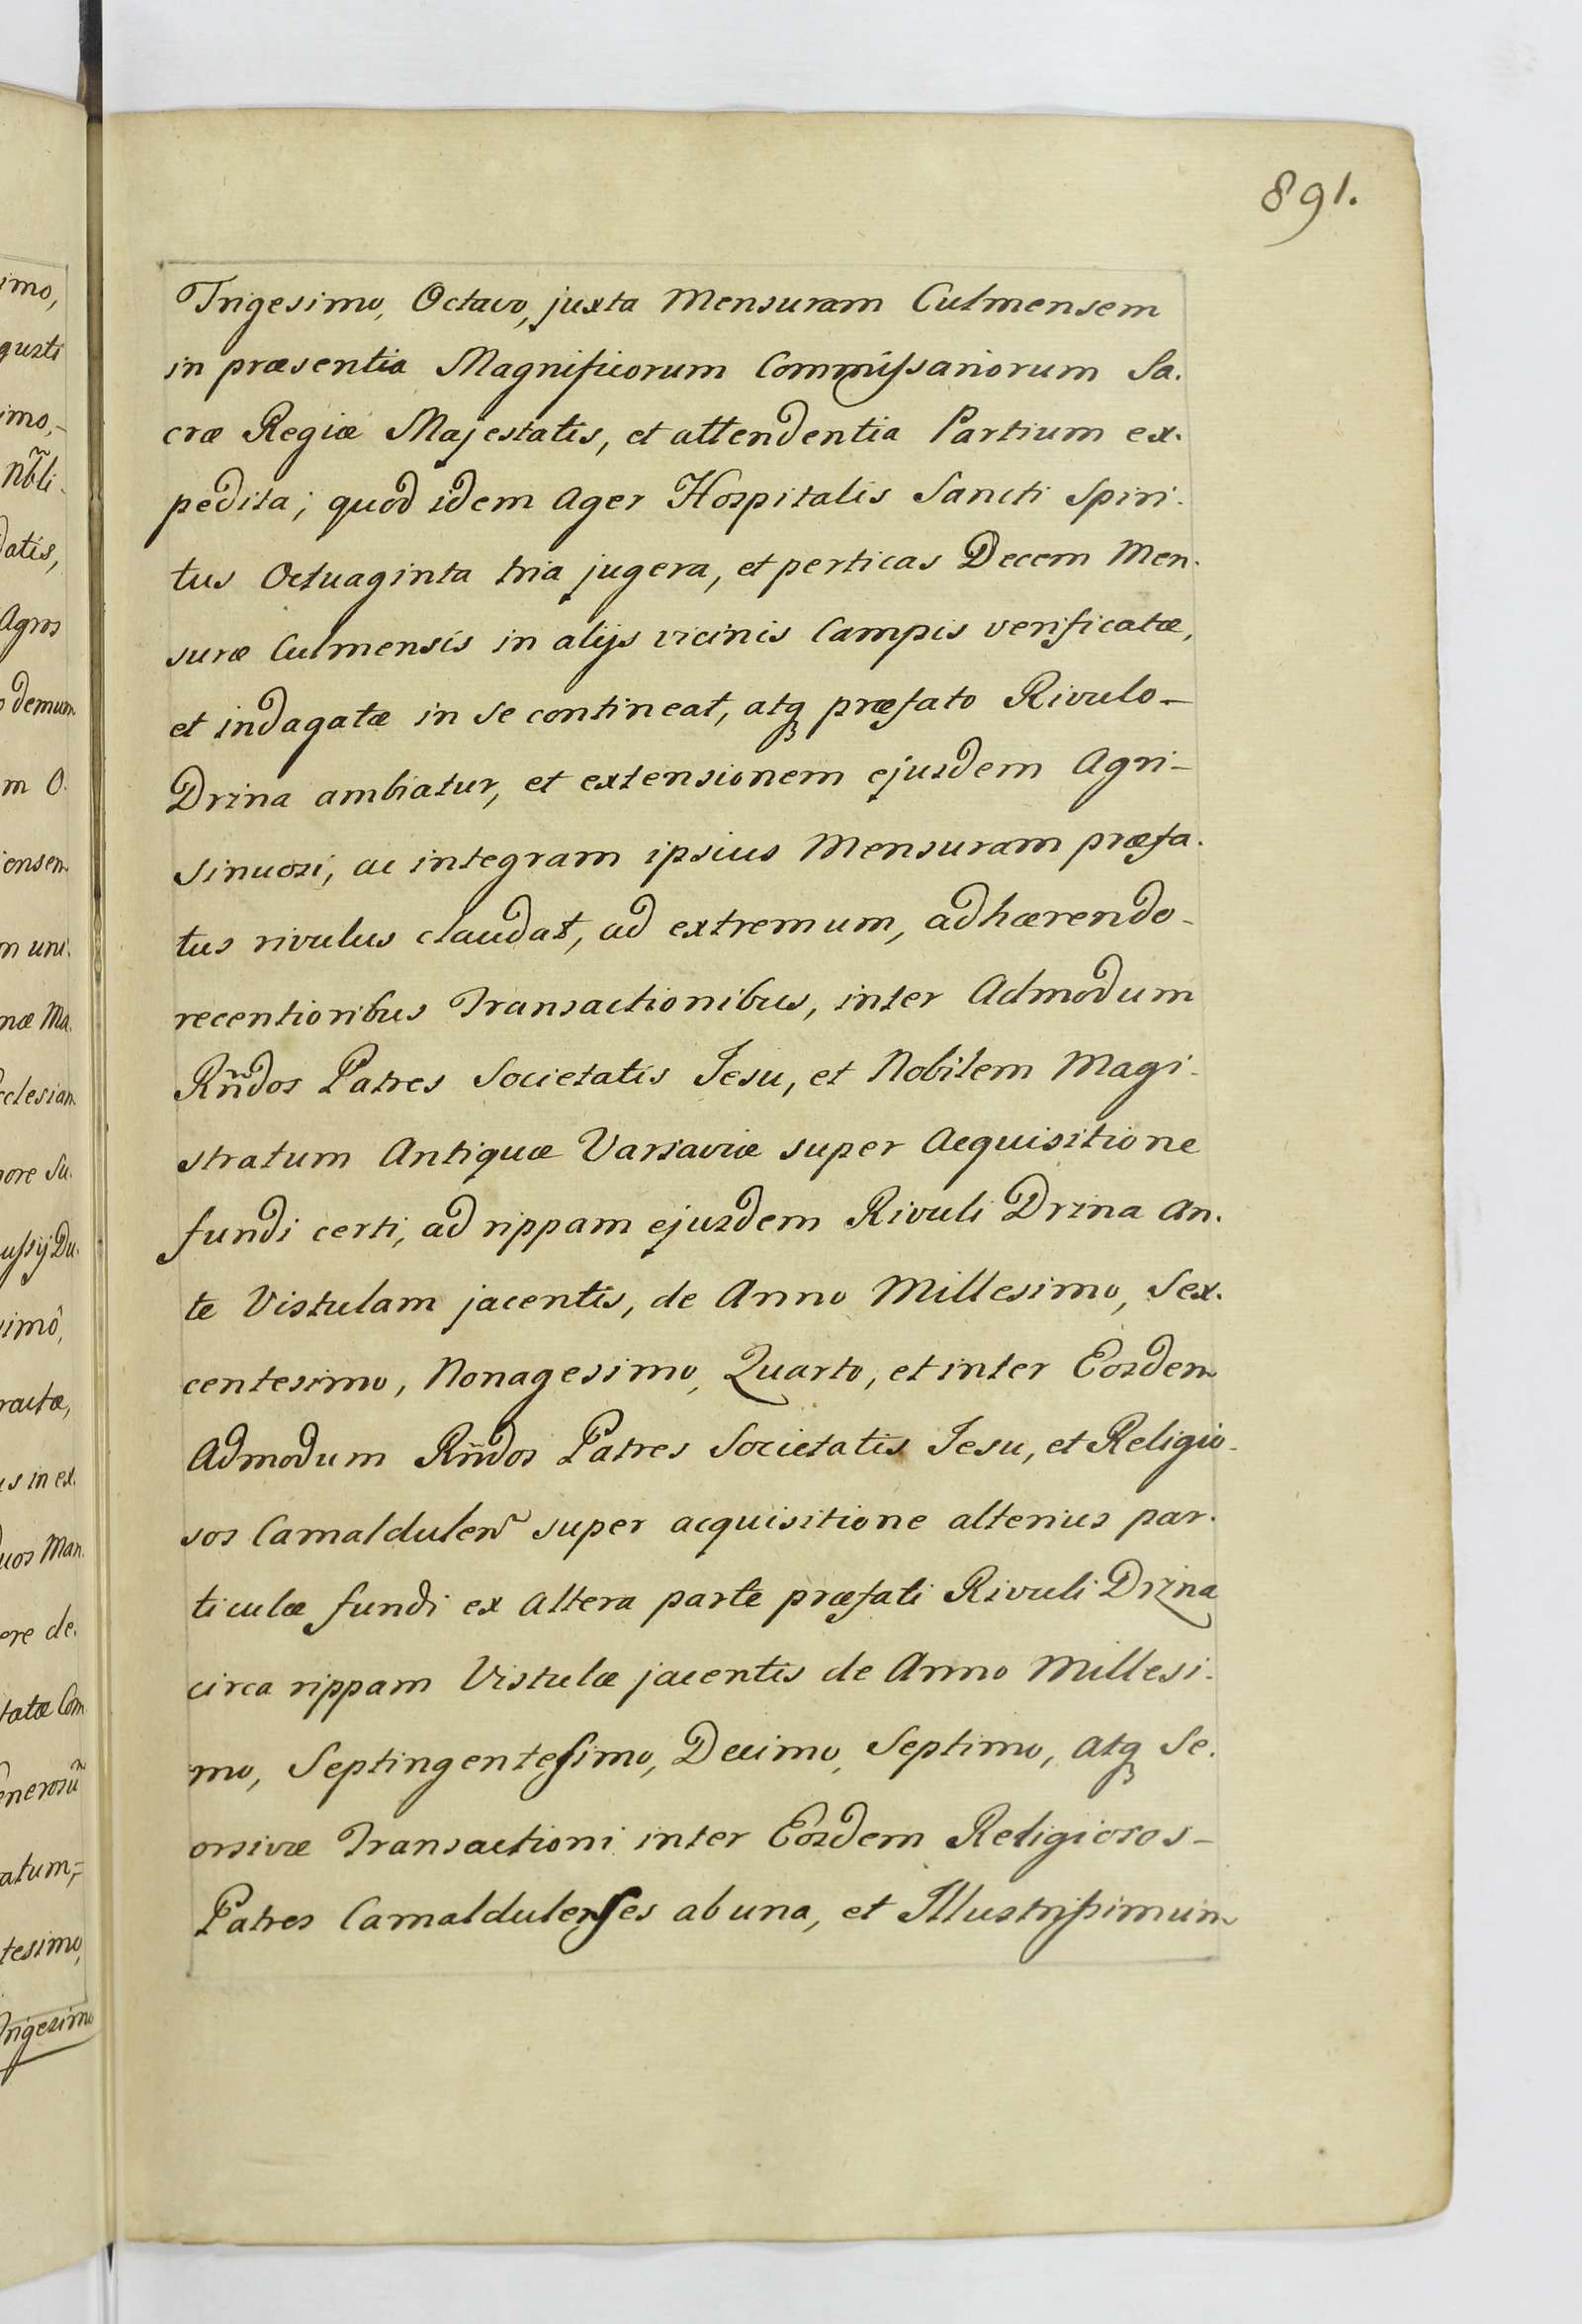 891.
Trigesimo, Octavo, juxta Mensuram Culmensem
in præsentia Magnificorum Commissariorum Sa.
cræ Regiæ Majestatis, et attendentia Partium ex.
pedita; quod idem Ager Hospitalis Sancti Spiri.
tus Octuaginta tria jugera, et perticas Decem Men.
suræ Culmensis in alijs vicinis Campis verificatæ,
et indagatæ in se contineat, atq præfato Rivulo-
Drzna ambiatur, et extensionem ejusdem Agri-
sinuosi, ac integram ipsius Mensuram præfa.
tus rivulus claudat, ad extremum, adhærendo-
recentioribus Transactionibus, inter Admodum
Rñdos Patres Societatis Jesu, et Nobilem Magi-
stratum Antiquæ Varsaviæ super Acquisitione
fundi certi, ad rippam ejusdem Rivuli Drzna An.
te Vistulam jacentis, de Anno Millesimo, Sex.
centesimo, Nonagesimo, Quarto, et inter Eosdem
Admodum Rñdos Patres Societatis Jesu, et Religio-
sos Camaldulens̃ super acquisitione alterius par.
ticulæ fundi ex altera parte præfati Rivuli Drzna
circa rippam Vistulæ jacentis de Anno Millesi.
mo, Septingentesimo, Decimo, Septimo, atq Se.
orsivæ Transactioni inter Eosdem Religiosos-
Patres Camaldulenses ab una, et Illustrissimum
imo,
gusti
imo,-
Nb̃li.
datis,
Agros
demum
m O.
iensem
m uni.
næ Ma.
cclesiam
nore Su.
ussij Du.
simô,
ractæ,
us in ex.
duos Man.
ere de.
tatæ Com
Generosũ
atum,-
tesimo,
Trigesimo